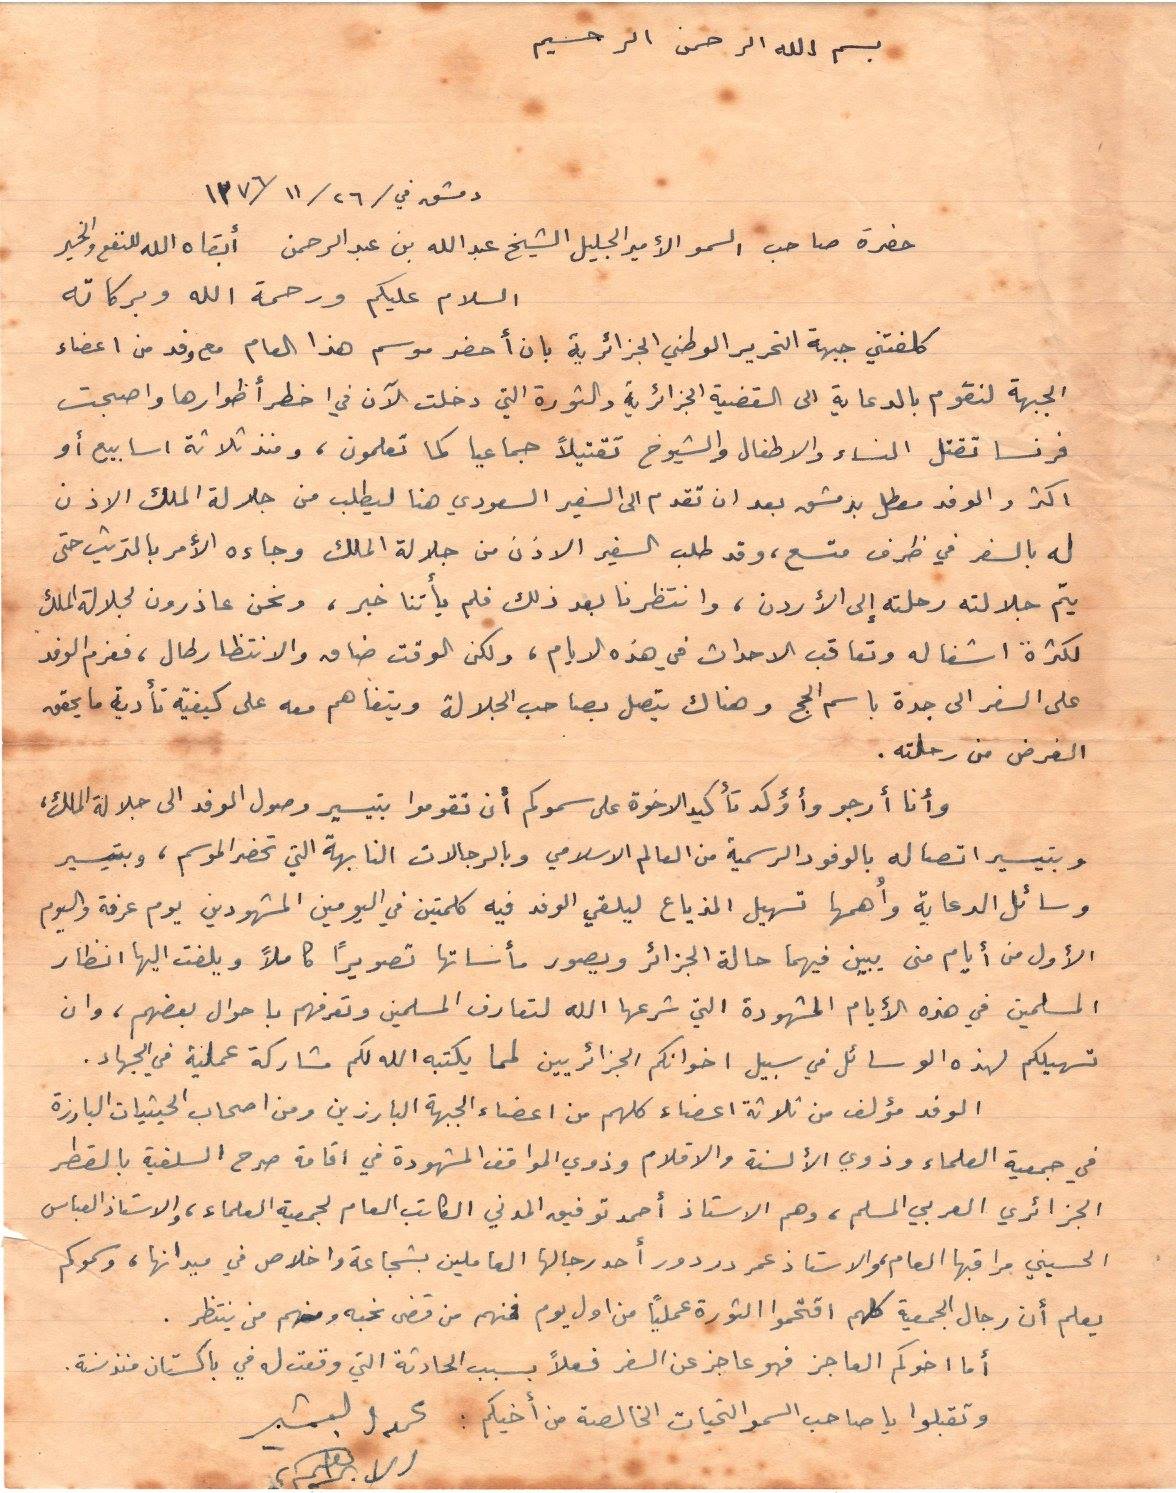 بسم الله الرحمن الرحيم
دمشق في / ٢٦ / ١١ / ١٣٧٦
حضرة صاحب السمو الأمير الجليل الشيخ عبد الله بن عبد الرحمن أبقاه الله للنفع والخير
السلام عليكم ورحمة الله وبركاته
كلفتني جبهة التحرير الوطني الجزائرية بان أحضر موسم هذا العام مع وفد من اعضاء
الجبهة لنقوم بالدعاية الى القضية الجزائرية والثورة التي دخلت الآن في اخطر أطوارها واصبحت
فرنسا تقتل النساء والاطفال والشيوخ تقتيلاً جماعيا كما تعلمون، ومنذ ثلاثة اسابيع أو
اكثر والوفد معطل بدمشق بعد ان تقدم الى السفير السعودي هنا ليطلب من جلالة الملك الاذن
له بالسفر في ظرف متسع، وقد طلب السفير الاذن من جلالة الملك وجاءه الأمر بالتريث حتى
يتم جلالته رحلته إلى الأردن، وانتظرنا بعد ذلك فلم يأتنا خبر، ونحن عاذرون لجلالة الملك
لكثرة اشغاله وتعاقب الاحداث في هذه الايام، ولكن الوقت ضاق والانتظار طال، فعزم الوفد
على السفر الى جدة باسم الحج وهناك يتصل بصاحب الجلالة ويتفاهم معه على كيفية تأدية ما يحقق
الغرض من رحلته.
وأنا أرجو وأؤكد تأكيد الاخوة على سموكم أن تقوموا بتيسير وصول الوفد الى جلالة الملك،
وبتيسير اتصاله بالوفود الرسمية من العالم الاسلامي وبالرجالات النابهة التي تحضر الموسم، وبتيسير
وسائل الدعاية وأهمها تسهيل المذياع ليلقي الوفد فيه كلمتين في اليومين المشهودين يوم عرفة واليوم
الأول من أيام منى يبين فيهما حالة الجزائر ويصور مأساتها تصويرًا كاملاً ويلفت اليها انظار
المسلمين في هذه الأيام المشهودة التي شرعها الله لتعارف المسلمين وتعرفهم باحوال بعضهم، وان
تسهيلكم لهذه الوسائل في سبيل اخوانكم الجزائريين لمما يكتبه الله لكم مشاركة عملية في الجهاد.
الوفد مؤلف من ثلاثة اعضاء كلهم من اعضاء الجبهة البارزين ومن اصحاب الحيثيات البارزة
في جمعية العلماء وذوي الألسنة والاقلام وذوي المواقف المشهودة في اقامة صرح السلفية بالقطر
الجزائري العربي المسلم، وهم الاستاذ أحمد توفيق المدني الكاتب العام لجمعية العلماء، والاستاذ العباس
الحسيني مراقبها العام، والاستاذ عمر دردور أحد رجالها العاملين بشجاعة واخلاص في ميدانها، وسموكم
يعلم أن رجال الجمعية كلهم اقتحموا الثورة عمليًا من اول يوم فمنهم من قضى نحبه ومنهم من ينتظر.
أما اخوكم العاجز فهو عاجز عن السفر فعلاً بسبب الحادثة التي وقعت له في باكستان منذ سنة.
وتقبلوا يا صاحب السمو التحيات الخالصة من أخيكم: محمد البشير
الابراهيمي